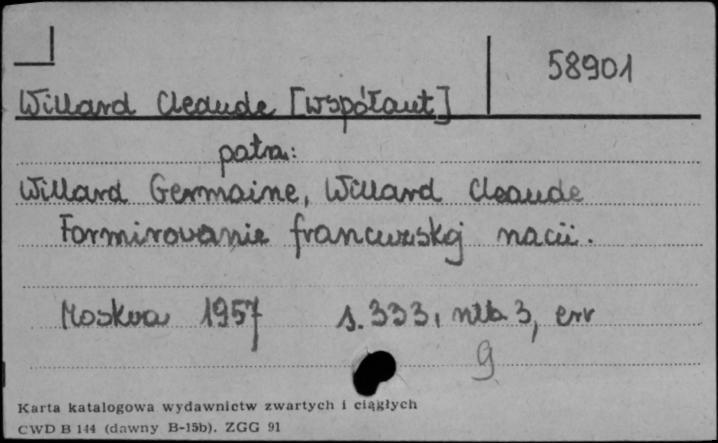 58901
Willard Cleaude [współaut]
patrz:
Willard Germaine, Willard Cleaude
Formirovanie francuzskoj nacii.
Moskva 1957 s. 333, nlb 3, err
9
Karta katalogowa wydawnictw zwartych i ciągłych
CWD B 144 (dawny B-15b). ZGG 91